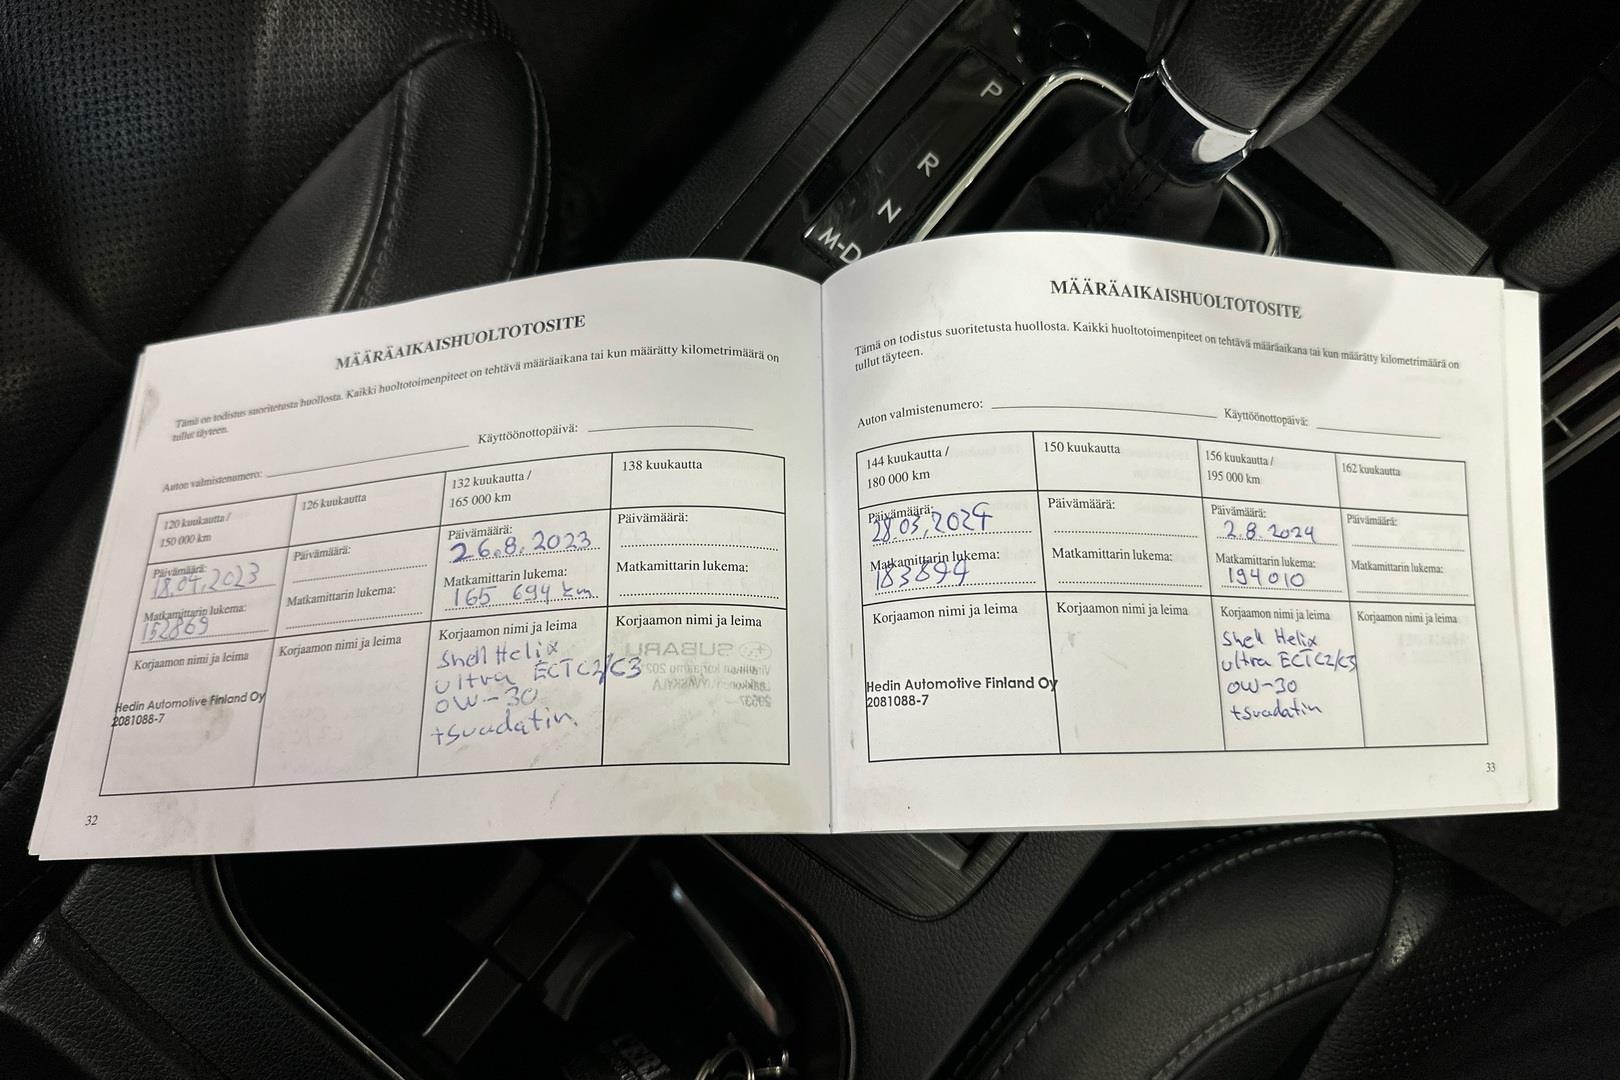 P
R
N
M-D
MÄÄRÄAIKAISHUOLTOTOSITE
Tämä on todistus suoritetusta huollosta. Kaikki huoltotoimenpiteet on tehtävä määräaikana tai kun määrätty kilometrimäärä on
tullut täyteen.
Auton valmistenumero: Käyttöönottopäivä:
120 kuukautta /
150 000 km
Päivämäärä:
18.04.2023
Matkamittarin lukema:
152869
Korjaamon nimi ja leima
Hedin Automotive Finland Oy
2081088-7
126 kuukautta
Päivämäärä:
Matkamittarin lukema:
Korjaamon nimi ja leima
132 kuukautta /
165 000 km
Päivämäärä:
26.8.2023
Matkamittarin lukema:
165 694 km
Korjaamon nimi ja leima
Shell Helix
ultra ECTC2/C3
0W-30
+Suodatin.
138 kuukautta
Päivämäärä:
Matkamittarin lukema:
Korjaamon nimi ja leima
SUBARU
32
MÄÄRÄAIKAISHUOLTOTOSITE
Tämä on todistus suoritetusta huollosta. Kaikki huoltotoimenpiteet on tehtävä määräaikana tai kun määrätty kilometrimäärä on
tullut täyteen.
Auton valmistenumero: Käyttöönottopäivä:
144 kuukautta /
180 000 km
Päivämäärä:
28.03.2024
Matkamittarin lukema:
183894
Korjaamon nimi ja leima
Hedin Automotive Finland Oy
2081088-7
150 kuukautta
Päivämäärä:
Matkamittarin lukema:
Korjaamon nimi ja leima
156 kuukautta /
195 000 km
Päivämäärä:
2.8.2024
Matkamittarin lukema:
194010
Korjaamon nimi ja leima
Shell Helix
ultra ECTC2/C3
0W-30
+Suodatin
162 kuukautta
Päivämäärä:
Matkamittarin lukema:
Korjaamon nimi ja leima
33